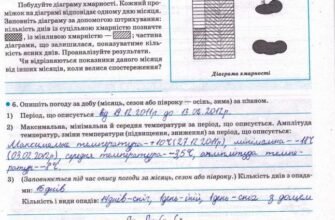 Побудуйте діаграму хмарності. Кожний про-
міжок на діаграмі відповідає одному дню місяця.
Побудуйте діаграму за допомогою штрихування:
кількість днів із суцільною хмарністю позначте
, із мінливою хмарністю — ; частина
діаграми, що залишилася, показуватиме кіль-
кість ясних днів. Проаналізуйте її.
Чи відрізняються показники даного місяця
від інших місяців, коли велися спостереження?
Діаграма хмарності
6. Опишіть погоду за добу (місяць, сезон або півроку — осінь, зима) за планом.
1) Період, що описується від 19.12.2011р до 13.02.2012р.
2) Максимальна, мінімальна й середня температура за період, що описується. Амплітуда
температур, зміни температури (підвищення, зниження) за період, що описується.
Максимальна температура-+10°C(27.12.2011), мінімальна--18°
(03.02.2012р) середня температура--3,5°, амплітуда темпе-
ратур-
3) (Заповнюється під час опису погоди за місяць, сезон або півроку.) Кількість днів з опада-
ми: днів
Кількість і види опадів: днів-сніг, день-сніг, день-сніг з дощем